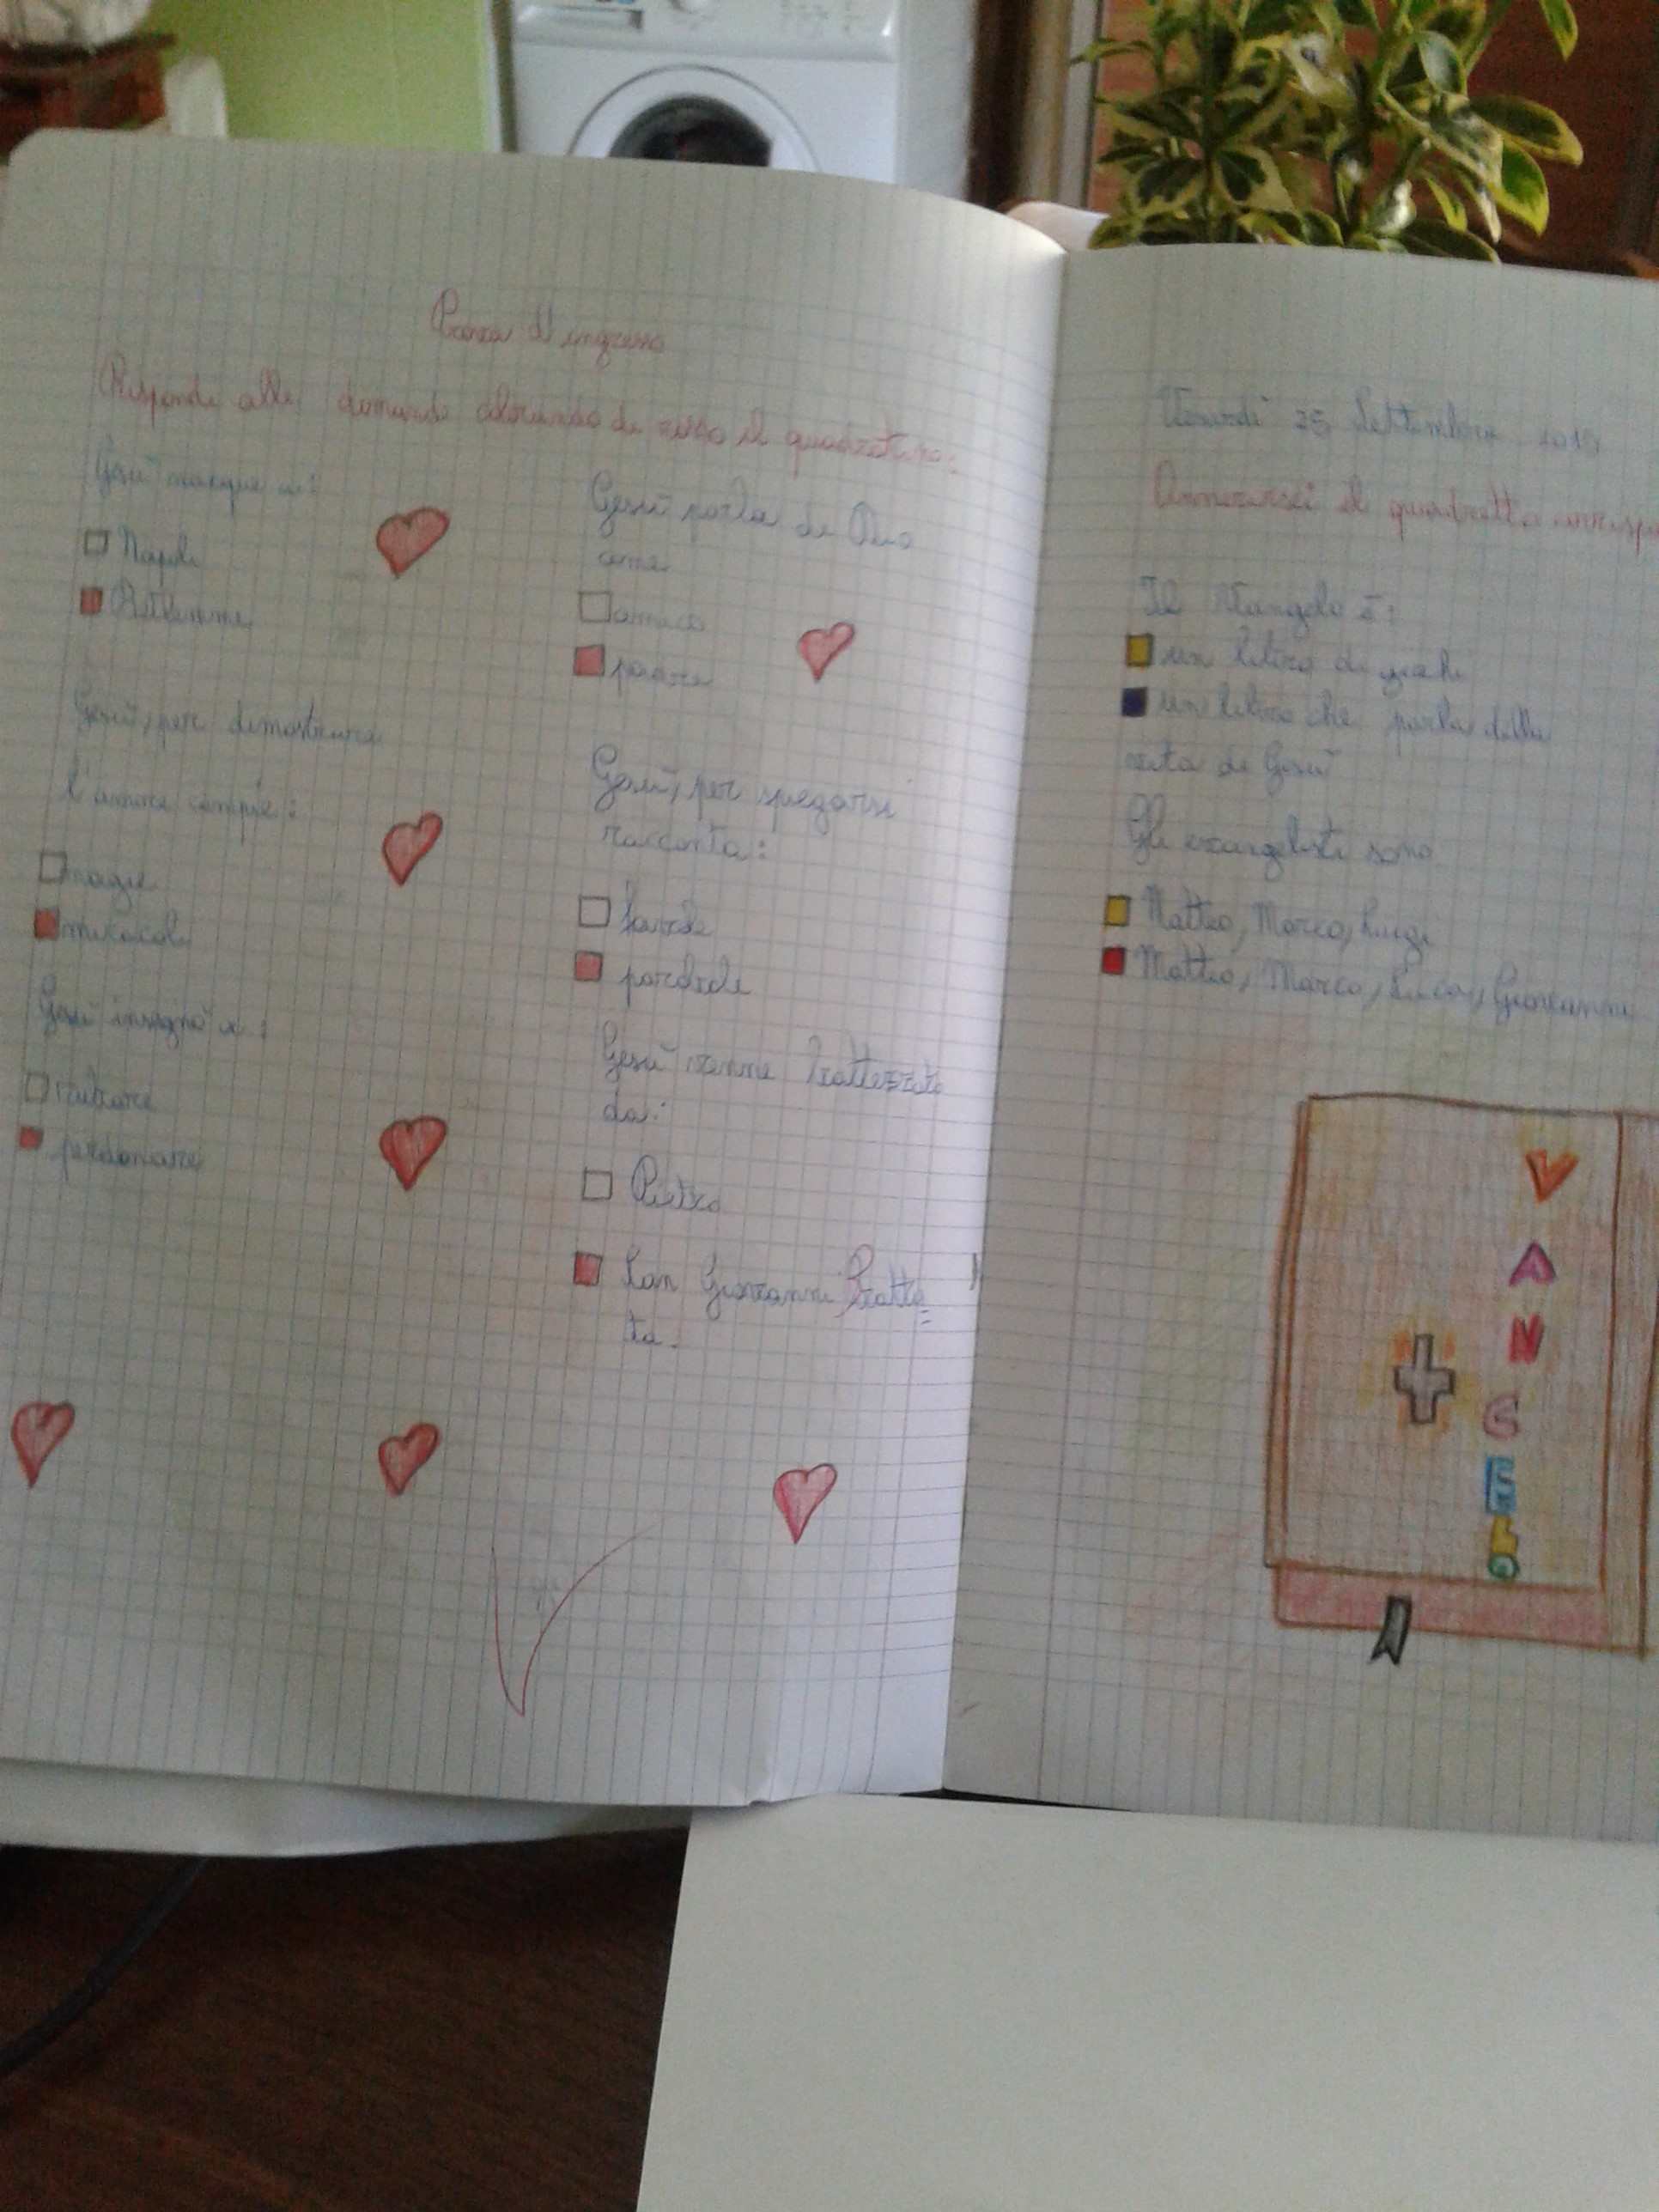 Prova d'ingresso
Rispondi alle domande colorando di rosso il quadratino:
Gesù nacque a:
Napoli
Betlemme
Gesù, per dimostrare
l'amore compie:
magie
miracoli
Gesù insegnò a:
rubare
perdonare
Gesù parla di Dio
come
amico
padre
Gesù, per spiegarsi
racconta:
favole
parabole
Gesù venne battezzato
da:
Pietro
San Giovanni Batti=
sta.
Venerdì 25 Settembre 2015
Annerisci il quadretto
Il Vangelo è:
un libro di giochi
un libro che parla della
vita di Gesù
Gli evangelisti sono
Matteo, Marco, Luigi
Matteo, Marco, Luca, Giovanni
VANGELO